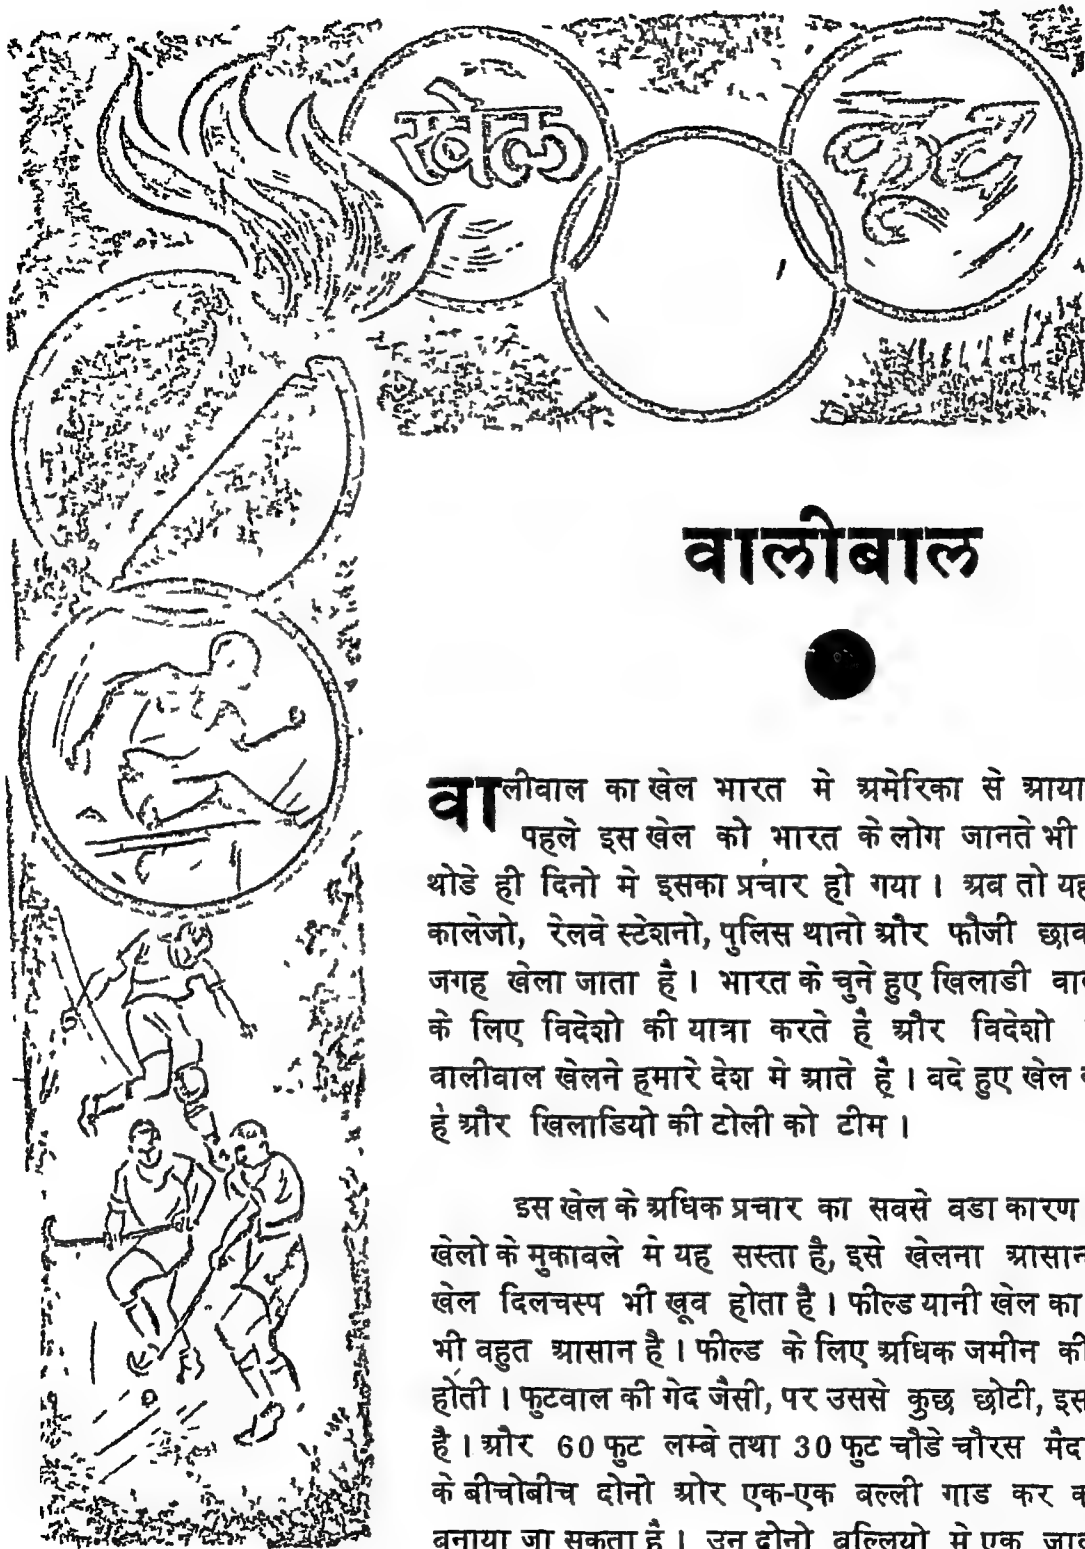 खेल
कूद
वालीबाल
वालीवाल का खेल भारत मे अमेरिका से आया
पहले इस खेल को भारत के लोग जानते भी
थोडे ही दिनो मे इसका प्रचार हो गया । अब तो यह
कालेजो, रेलवे स्टेशनो, पुलिस थानो और फौजी छाव
जगह खेला जाता है । भारत के चुने हुए खिलाडी वा
के लिए विदेशो की यात्रा करते है और विदेशो
वालीवाल खेलने हमारे देश मे आते है । वदे हुए खेल
है और खिलाडियो की टोली को टीम ।
इस खेल के अधिक प्रचार का सबसे वडा कारण
खेलो के मुकावले मे यह सस्ता है, इसे खेलना आसान
खेल दिलचस्प भी खूव होता है । फील्ड यानी खेल का
भी वहुत आसान है । फील्ड के लिए अधिक जमीन की
होती । फुटवाल की गेद जैसी, पर उससे कुछ छोटी, इस
है । और 60 फुट लम्बे तथा 30 फुट चौडे चौरस मैद
के बीचोबीच दोनो ओर एक-एक वल्ली गाड कर
वनाया जा सकता है । उन दोनो वल्लियो मे एक जा